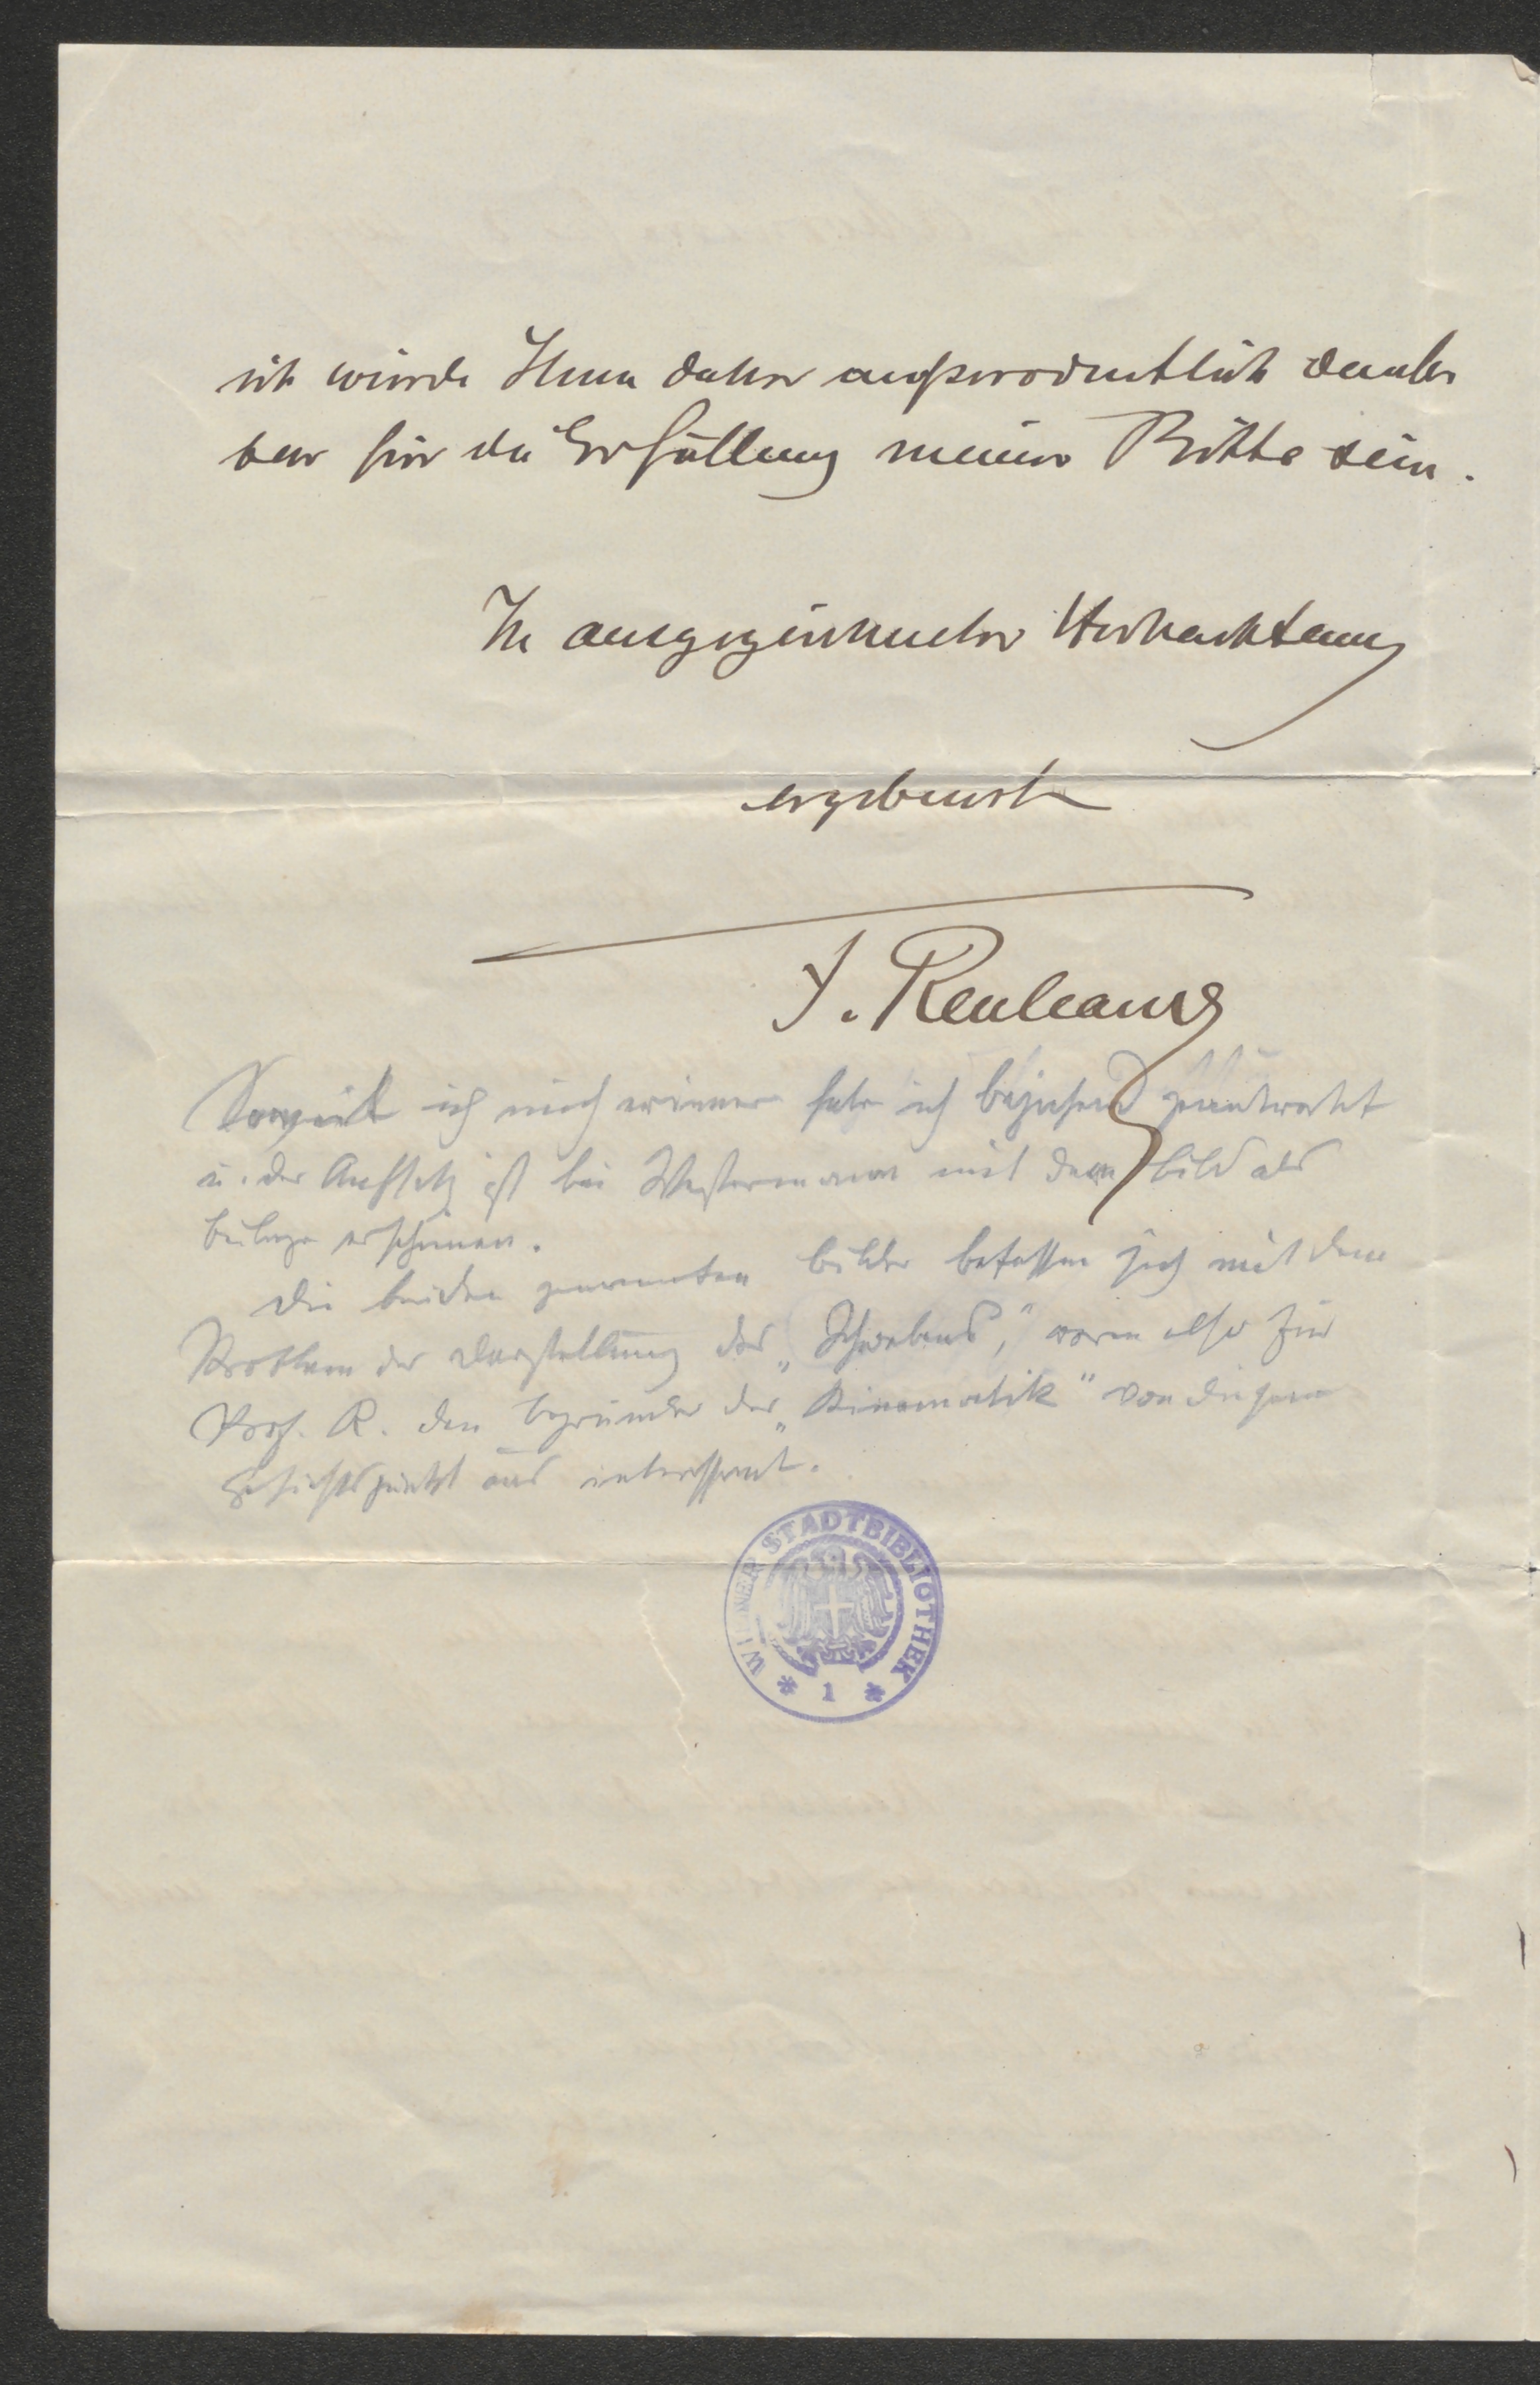 ich würde Ihnen daher außerordentlich dank
bar für die Erfüllung meiner Bitte sein.
In ausgezeichneter Hochachtung
ergebenst
F. Reuleaux
Soweit ich mich erinnere habe ich bejahend geantwortet
u. der Aufsatz ist bei Westermann mit dem Bild als
Beilage erschienen.
Die beiden genannten Bilder befassen sich mit dem
Problem der Darstellung des „Schwebens“, waren also für
Prof. R. den Begründer der „Kinematik“ von diesem
Gesichtspunkt aus interessant.
WIENER STADTBIBLIOTHEK
* 1 *